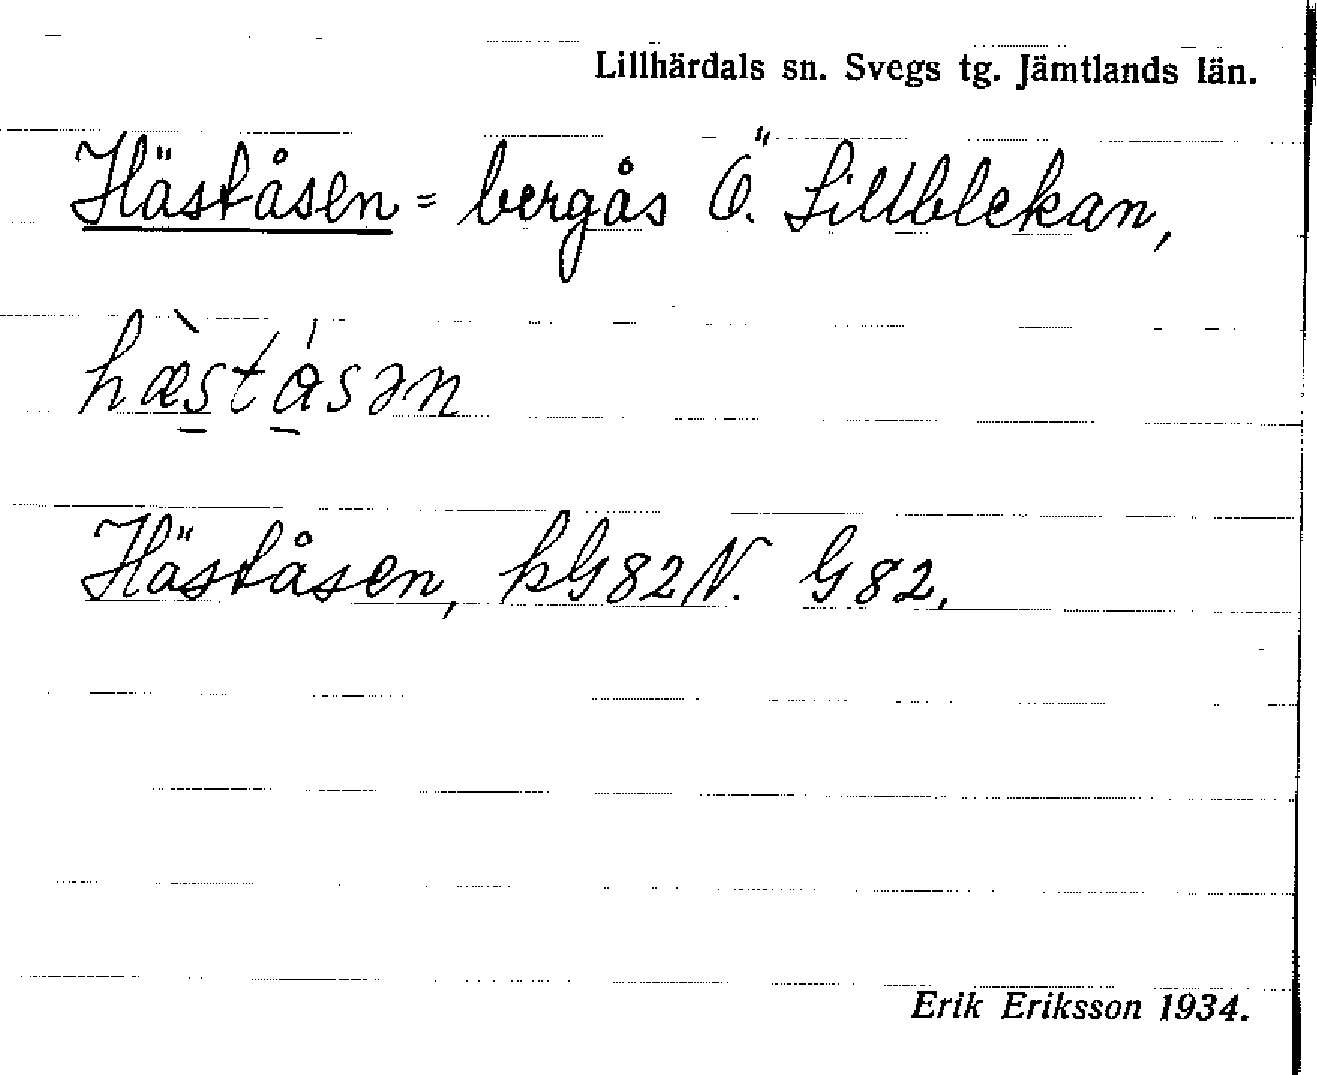 Lillhärdals sn. Svegs tg. Jämtlands län.
Häståsen = bergås Ö. Lillblekan,
hæ̀stásən
Häståsen, kG82N. G82.
Erik Eriksson 1934.